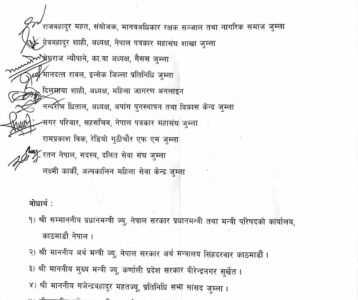 राजबहादुर महत, संयोजक, मानवअधिकार रक्षक सञ्जाल तथा नागरिक समाज जुम्ला
नेत्रबहादुर शाही, अध्यक्ष, नेपाल पत्रकार महासंघ शाखा जुम्ला
न्यौपाने, का.वा अध्यक्ष, गैसस जुम्ला
मानदत्त रावल, इन्सेक जिल्ला प्रतिनिधि जुम्ला
दिलमाया शाही, महिला जागरण अनलाइन
नन्दरीप धिताल, अध्यक्ष, अपांग पुनस्थापन तथा विकास केन्द्र जुम्ला
सगर परियार, सहसचिव, नेपाल पत्रकार महासंघ जुम्ला
रामप्रकाश विक, रेडियो गुठीचौर एफ एम जुम्ला
रतन नेपाल, सदस्य, दलित सेवा संघ जुम्ला
लक्ष्मी कार्की, अल्पकालिन महिला सेवा केन्द्र जुम्ला
बोधार्थ:
१) श्री सम्माननीय प्रधानमन्त्री ज्यु, नेपाल सरकार प्रधानमन्त्री तथा मन्त्री परिषदको कार्यालय,
काठमाडौं नेपाल ।
२) श्री माननीय अर्थ मन्त्री ज्यु, नेपाल सरकार अर्थ मन्त्रालय सिंहदरबार काठमाडौं ।
३) श्री माननीय मुख्य मन्त्री ज्यु, कर्णाली प्रदेश सरकार वीरेन्द्रनगर सुर्खेत ।
४) श्री माननीय गजेन्द्रबहादुर महतज्यु, प्रतिनिधि सभा सांसद जुम्ला ।